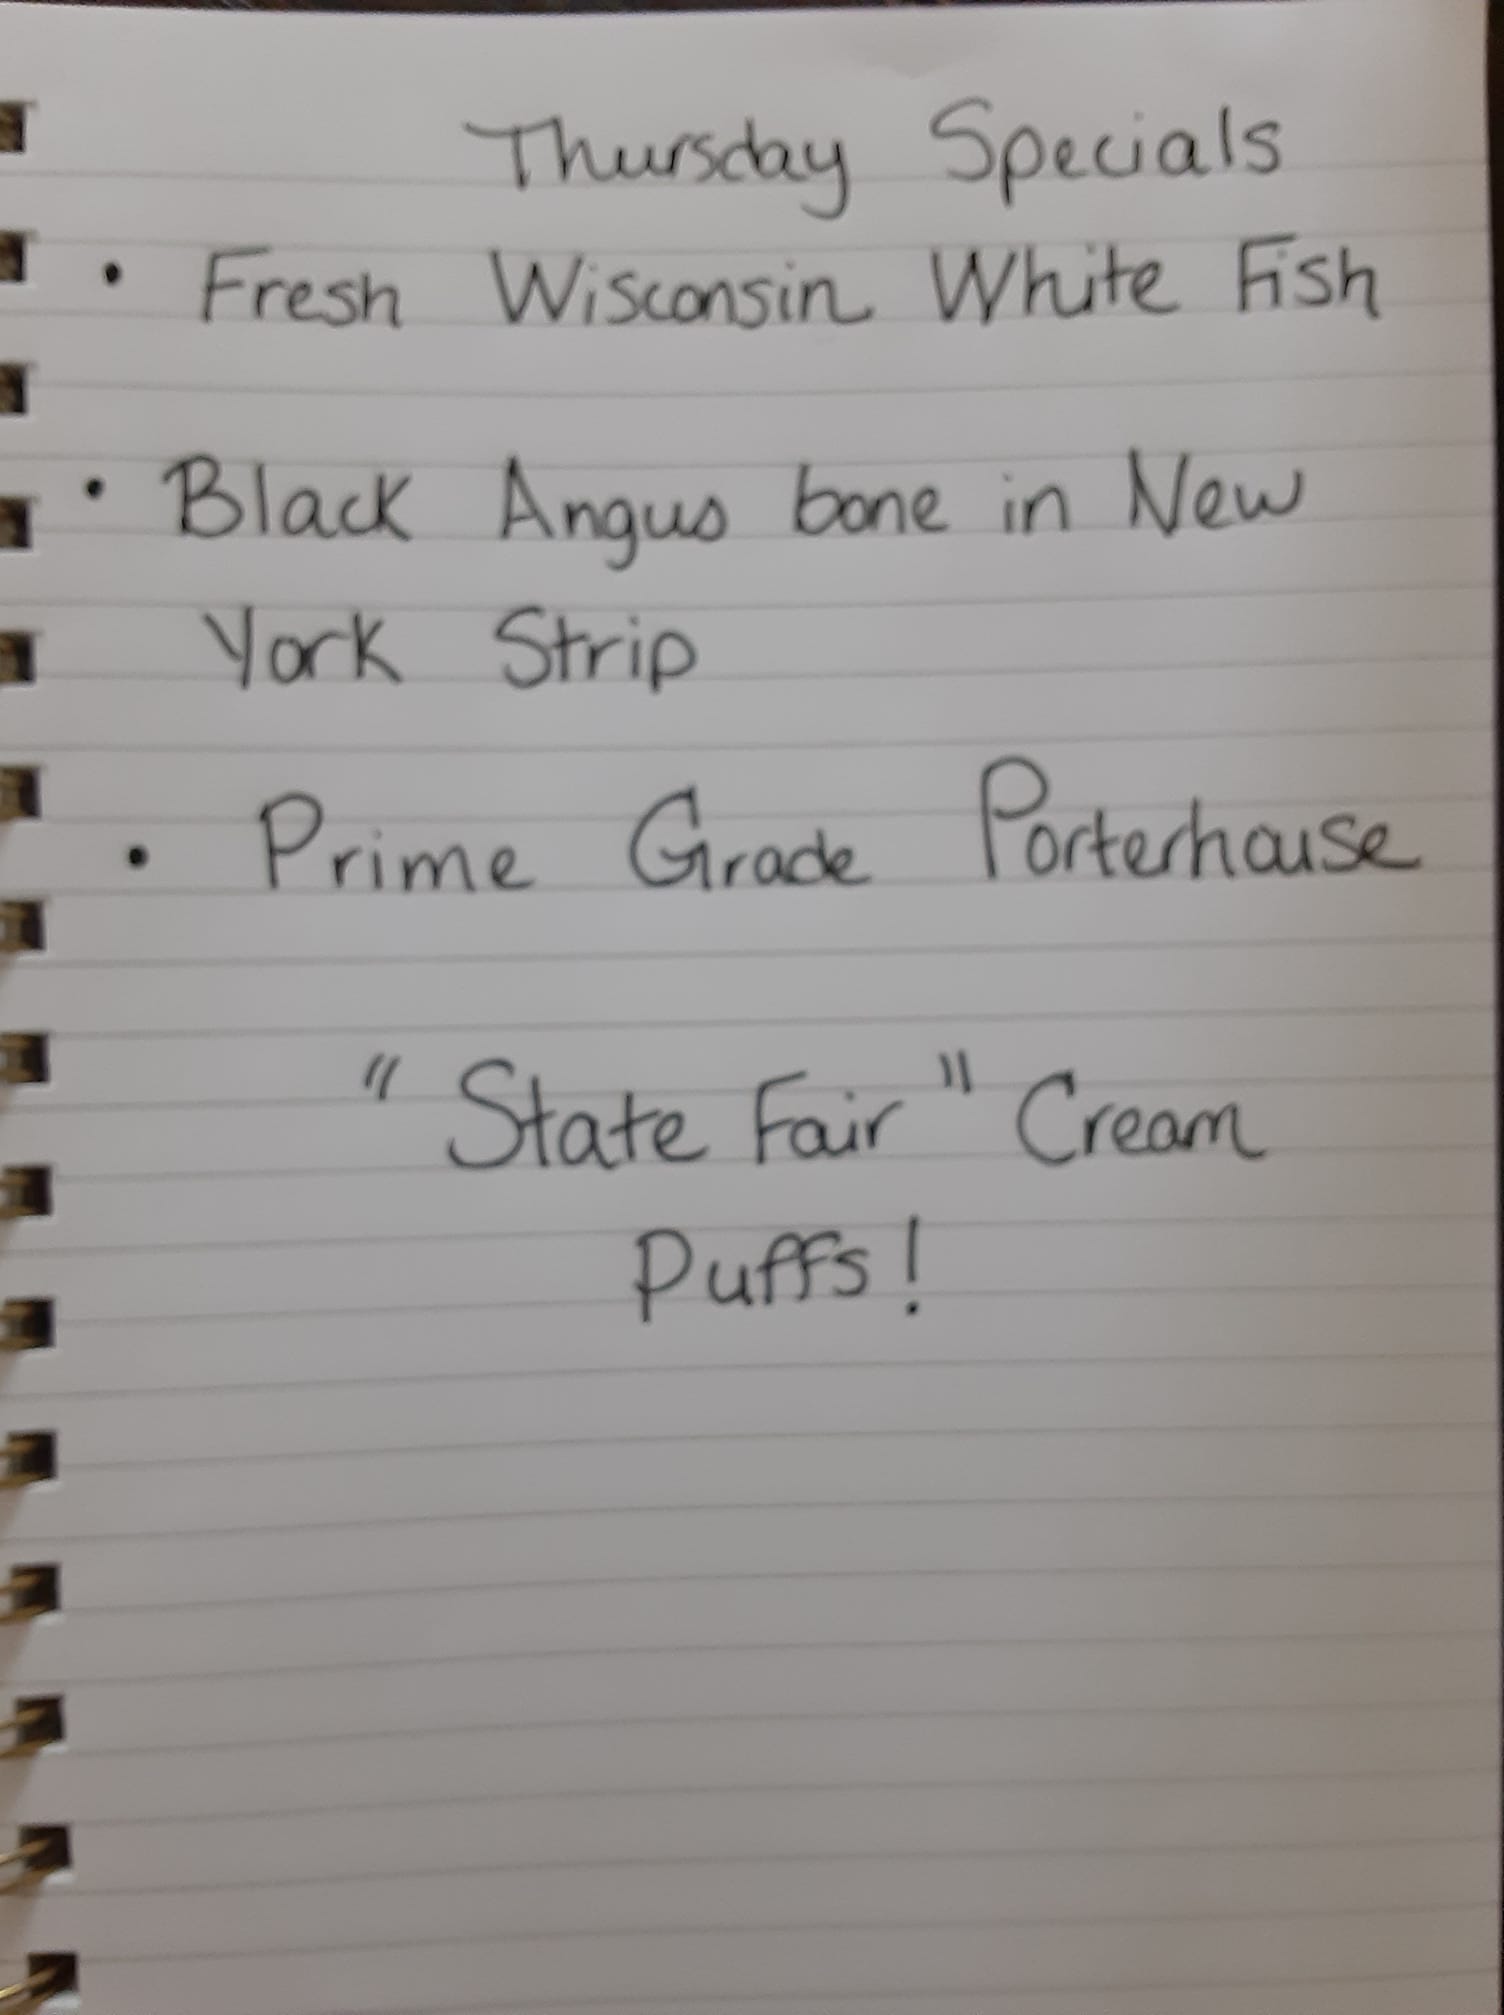 Thursday Specials
• Fresh Wisconsin White Fish
• Black Angus bone in New
York Strip
• Prime Grade Porterhouse
"State Fair" Cream
Puffs!